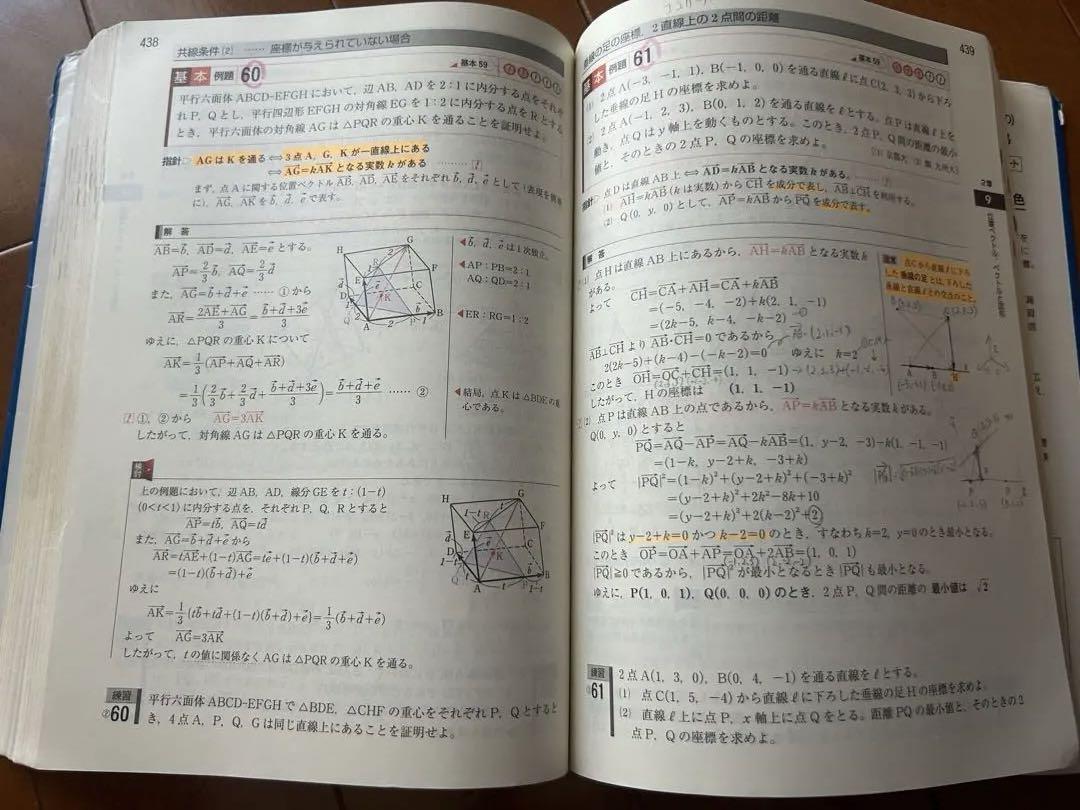 438
共線条件 [2] …… 座標が与えられていない場合
基本 例題 60
基本 59
平行六面体 ABCD-EFGH において, 辺 AB, AD を 2:1 に内分する点をそれぞ
れ P, Q とし, 平行四辺形 EFGH の対角線 EG を 1:2 に内分する点を R とする
とき, 平行六面体の対角線 AG は △PQR の重心 K を通ることを証明せよ。
指針 AG は K を通る ⟺ 3点 A, G, K が一直線上にある
⟺ AG=kAK となる実数 k がある
まず, 点 A に関する位置ベクトル AB, AD, AE をそれぞれ b, d, e として (表現を簡単
に), AG, AK を b, d, e で表す。
解答
AB=b, AD=d, AE=e とする。
AP=2/3 b, AQ=2/3 d
また, AG=b+d+e …… ① から
AR=(2AE+AG)/3=(b+d+3e)/3
ゆえに, △PQR の重心 K について
AK=1/3(AP+AQ+AR)
=1/3(2/3 b+2/3 d+(b+d+3e)/3)=(b+d+e)/3 …… ②
①, ② から AG=3AK
したがって, 対角線 AG は △PQR の重心 K を通る。
b, d, e は 1 次独立。
AP:PB=2:1
AQ:QD=2:1
ER:RG=1:2
結局, 点 K は △BDE の重
心である。
検討
上の例題において, 辺 AB, AD, 線分 GE を t:(1-t)
(0<t<1) に内分する点を, それぞれ P, Q, R とすると
AP=tb, AQ=td
また, AG=b+d+e から
AR=tAE+(1-t)AG=te+(1-t)(b+d+e)
=(1-t)(b+d)+e
ゆえに
AK=1/3{tb+td+(1-t)(b+d)+e}=1/3(b+d+e)
よって AG=3AK
したがって, t の値に関係なく AG は △PQR の重心 K を通る。
練習
②60
平行六面体 ABCD-EFGH で △BDE, △CHF の重心をそれぞれ P, Q とすると
き, 4点 A, P, Q, G は同じ直線上にあることを証明せよ。
439
垂線の足の座標, 2 直線上の 2 点間の距離
基本 例題 61
基本 59
(1) 2点 A(-3, -1, 1), B(-1, 0, 0) を通る直線 ℓ に点 C(2, 3, 3) から下ろ
した垂線の足 H の座標を求めよ。
(2) 2点 A(-1, 2, 3), B(0, 1, 2) を通る直線を ℓ とする。点 P は直線 ℓ 上を
動き, 点 Q は y 軸上を動くものとする。このとき, 2点 P, Q 間の距離の最小
値と, そのときの 2 点 P, Q の座標を求めよ。
指針 点 D は直線 AB 上 ⟺ AD=kAB となる実数 k がある。
(1) AH=kAB (k は実数) から CH を成分で表し, AB⊥CH を利用する。
(2) Q(0, y, 0) として, AP=kAB から PQ を成分で表す。
2章
9
位置ベクトル, ベクトルと図形
解答
(1) 点 H は直線 AB 上にあるから, AH=kAB となる実数 k
がある。
よって CH=CA+AH=CA+kAB
=(-5, -4, -2)+k(2, 1, -1)
=(2k-5, k-4, -k-2)
AB⊥CH より AB・CH=0 であるから
2(2k-5)+(k-4)-(-k-2)=0 ゆえに k=2
このとき OH=OC+CH=(1, 1, -1)
したがって, H の座標は (1, 1, -1)
点 C から直線 ℓ に下ろ
した垂線の足とは, 下ろした
垂線と直線 ℓ との交点のこと。
(2) 点 P は直線 AB 上の点であるから, AP=kAB となる実数 k がある。
Q(0, y, 0) とすると
PQ=AQ-AP=AQ-kAB=(1, y-2, -3)-k(1, -1, -1)
=(1-k, y-2+k, -3+k)
よって |PQ|²=(1-k)²+(y-2+k)²+(-3+k)²
=(y-2+k)²+2k²-8k+10
=(y-2+k)²+2(k-2)²+2
|PQ|² は y-2+k=0 かつ k-2=0 のとき, すなわち k=2, y=0 のとき最小となる。
このとき OP=OA+AP=OA+2AB=(1, 0, 1)
|PQ|≧0 であるから, |PQ|² が最小となるとき |PQ| も最小となる。
ゆえに, P(1, 0, 1), Q(0, 0, 0) のとき, 2点 P, Q 間の距離の 最小値は √2
練習
61
2点 A(1, 3, 0), B(0, 4, -1) を通る直線を ℓ とする。
(1) 点 C(1, 5, -4) から直線 ℓ に下ろした垂線の足 H の座標を求めよ。
(2) 直線 ℓ 上に点 P, x 軸上に点 Q をとる。距離 PQ の最小値と, そのときの 2
点 P, Q の座標を求めよ。